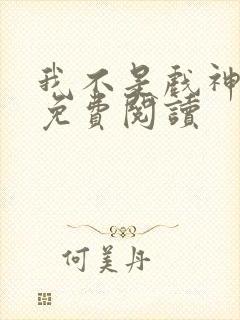 我不是戏神
免費閱讀
何美丹